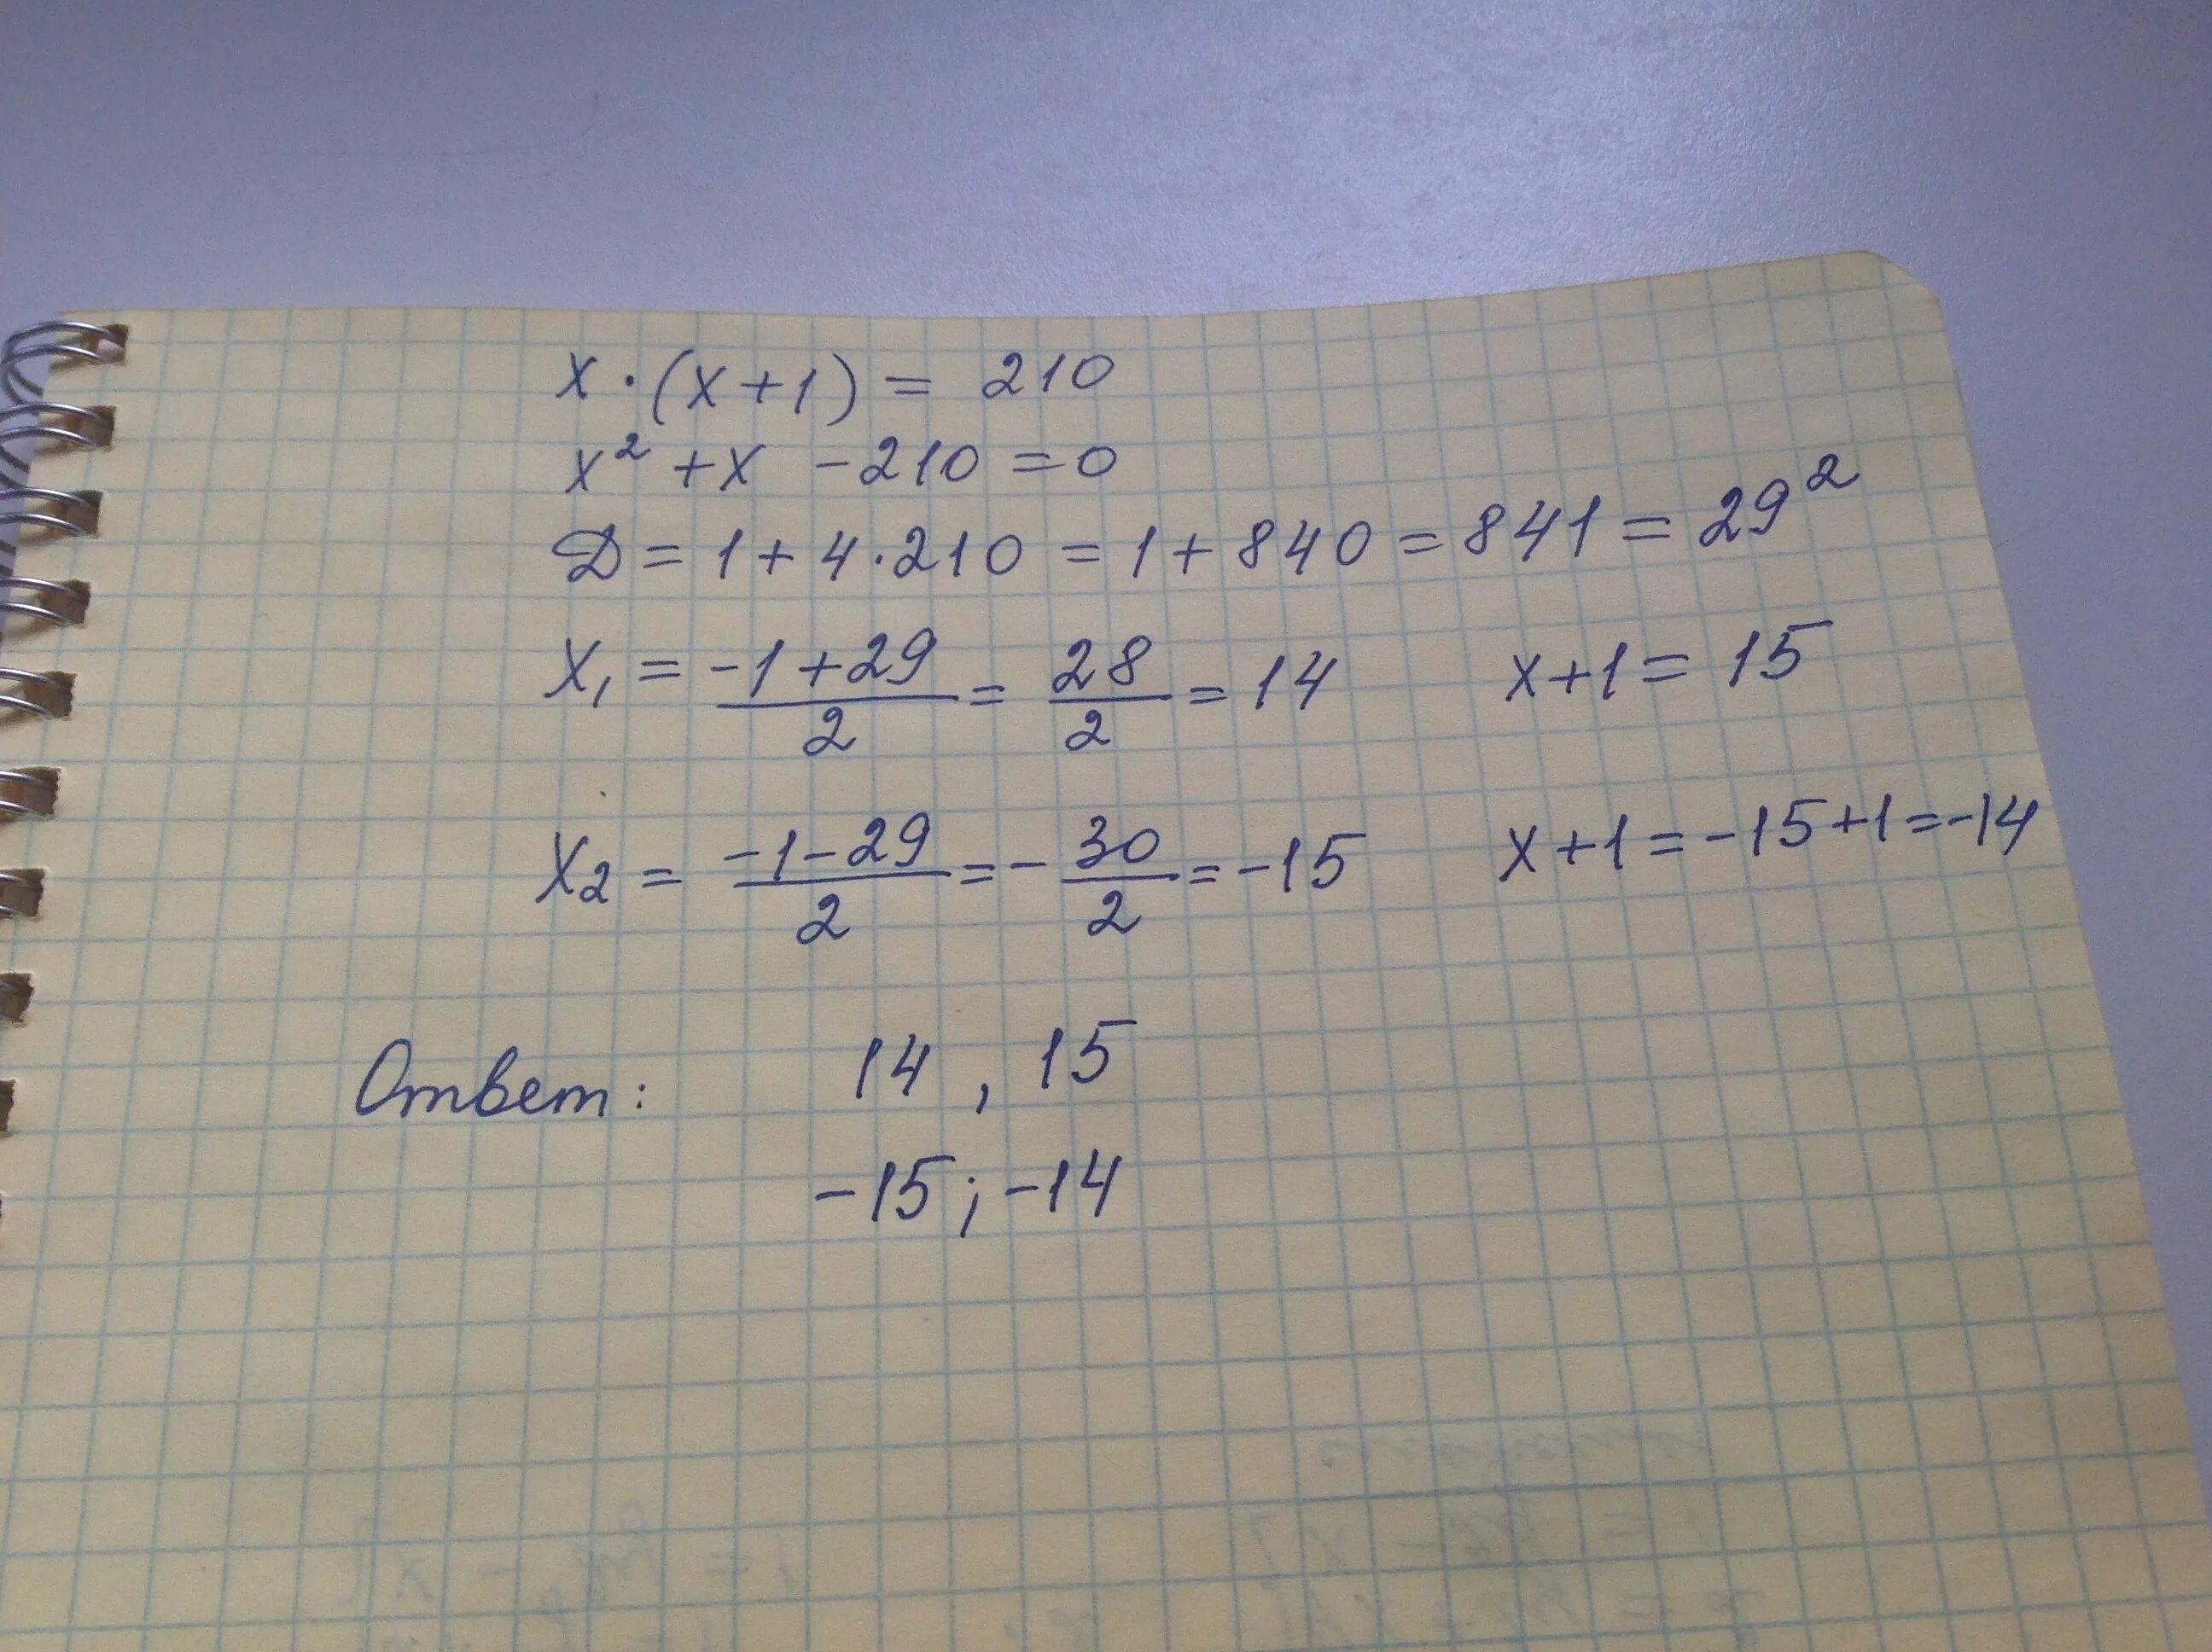 x·(x+1) = 210
x² + x - 210 = 0
Д = 1 + 4·210 = 1 + 840 = 841 = 29²
x₁ = (-1+29)/2 = 28/2 = 14 x+1 = 15
x₂ = (-1-29)/2 = -30/2 = -15 x+1 = -15+1 = -14
Ответ: 14, 15
-15; -14